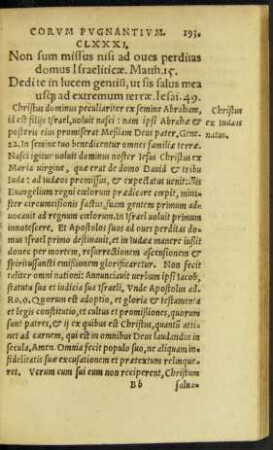 CORVM PVGNANTIVM. 195.
CLXXXI.
Non sum missus nisi ad oues perditas
domus Israeliticæ. Matth.15.
Dedi te in lucem gentiū, ut sis salus mea
usq; ad extremum terræ. Iesai. 49.
Christus dominus peculiariter ex semine Abraham,
id est filijs Israel, uoluit nasci: nam ipsi Abrahæ &
posteris eius promiserat Messiam Deus pater. Gene.
22. In semine tuo benedicentur omnes familiæ terræ.
Nasci igitur uoluit dominus noster Iesus Christus ex
Maria uirgine, quæ erat de domo Dauid & tribu
Iuda: ad iudæos promissus, & expectatus uenit:
Euangelium regni cœlorum prædicare cœpit, mini-
ster circumcisionis factus, suam gentem primum ad-
uocauit ad regnum cœlorum. In Israel uoluit primum
innotescere. Et Apostolos suos ad oues perditas do-
mus Israel primo destinauit, et in Iudæa manere iussit
donec per mortem, resurrectionem ascensionem &
spiritussancti emissionem glorificaretur. Non fecit
taliter omni nationi: Annunciauit uerbum ipsi Iacob,
statuta sua et iudicia sua Israeli, Vnde Apostolus ad
Ro.9. Quorum est adoptio, et gloria & testamenta
et legis constitutio, et cultus et promissiones, quorum
sunt patres, & ij ex quibus est Christus, quantū atti-
net ad carnem, qui est in omnibus Deus laudandus in
secula, Amen. Omnia fecit populo suo, ne aliquam in-
fidelitatis suæ excusationem et prætextum relinque-
ret. Verum cum sui eum non reciperent, Christum
Bb salua-
Christus
ex iudæis
natus.